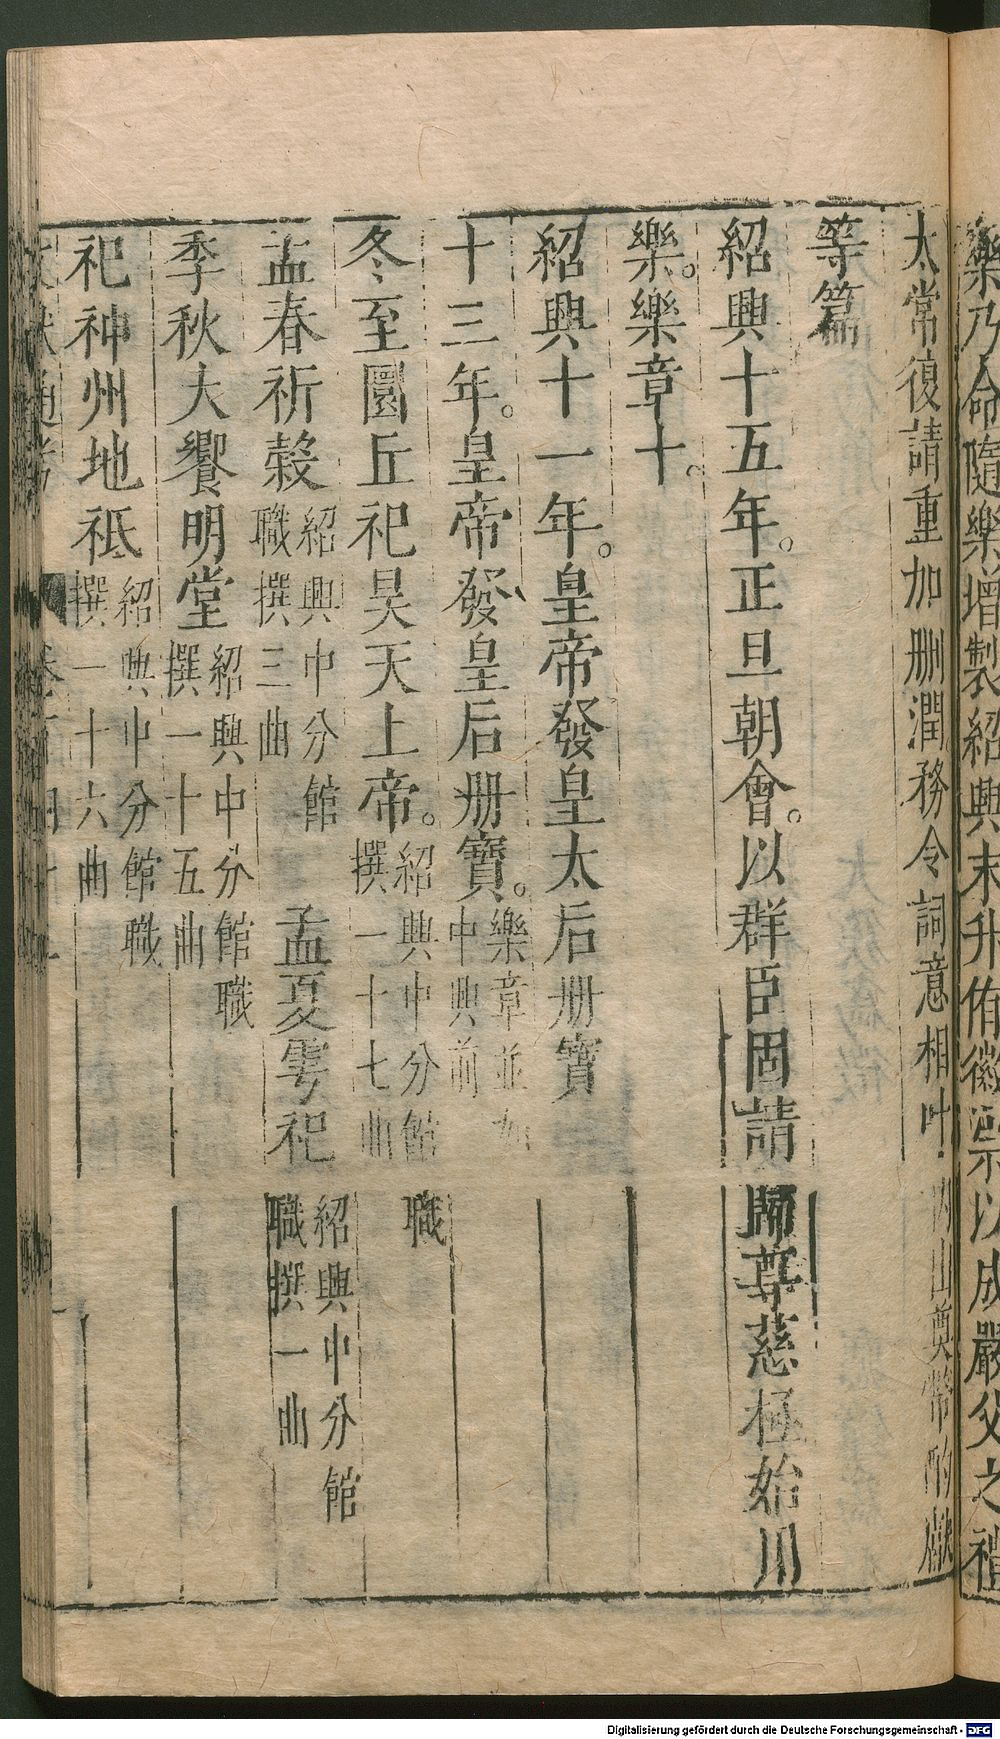 樂乃命隨樂增製紹興末升侑徽宗以成嚴父之禮
太常復請重加刪潤務令詞意相叶內出奠幣酌獻
等篇
紹興十五年。正旦朝會。以群臣固請歸尊慈極始用
樂。樂章十。
紹興十一年。皇帝發皇太后册寶
十三年。皇帝發皇后册寶。樂章並如中興前
冬至圜丘祀昊天上帝。紹興中分館職撰一十七曲
孟春祈穀紹興中分館職撰三曲 孟夏雩祀紹興中分館職撰一曲
季秋大饗明堂紹興中分館職撰一十五曲
祀神州地祇紹興中分館職撰一十六曲
文獻通考
Digitalisierung gefördert durch die Deutsche Forschungsgemeinschaft - DFG